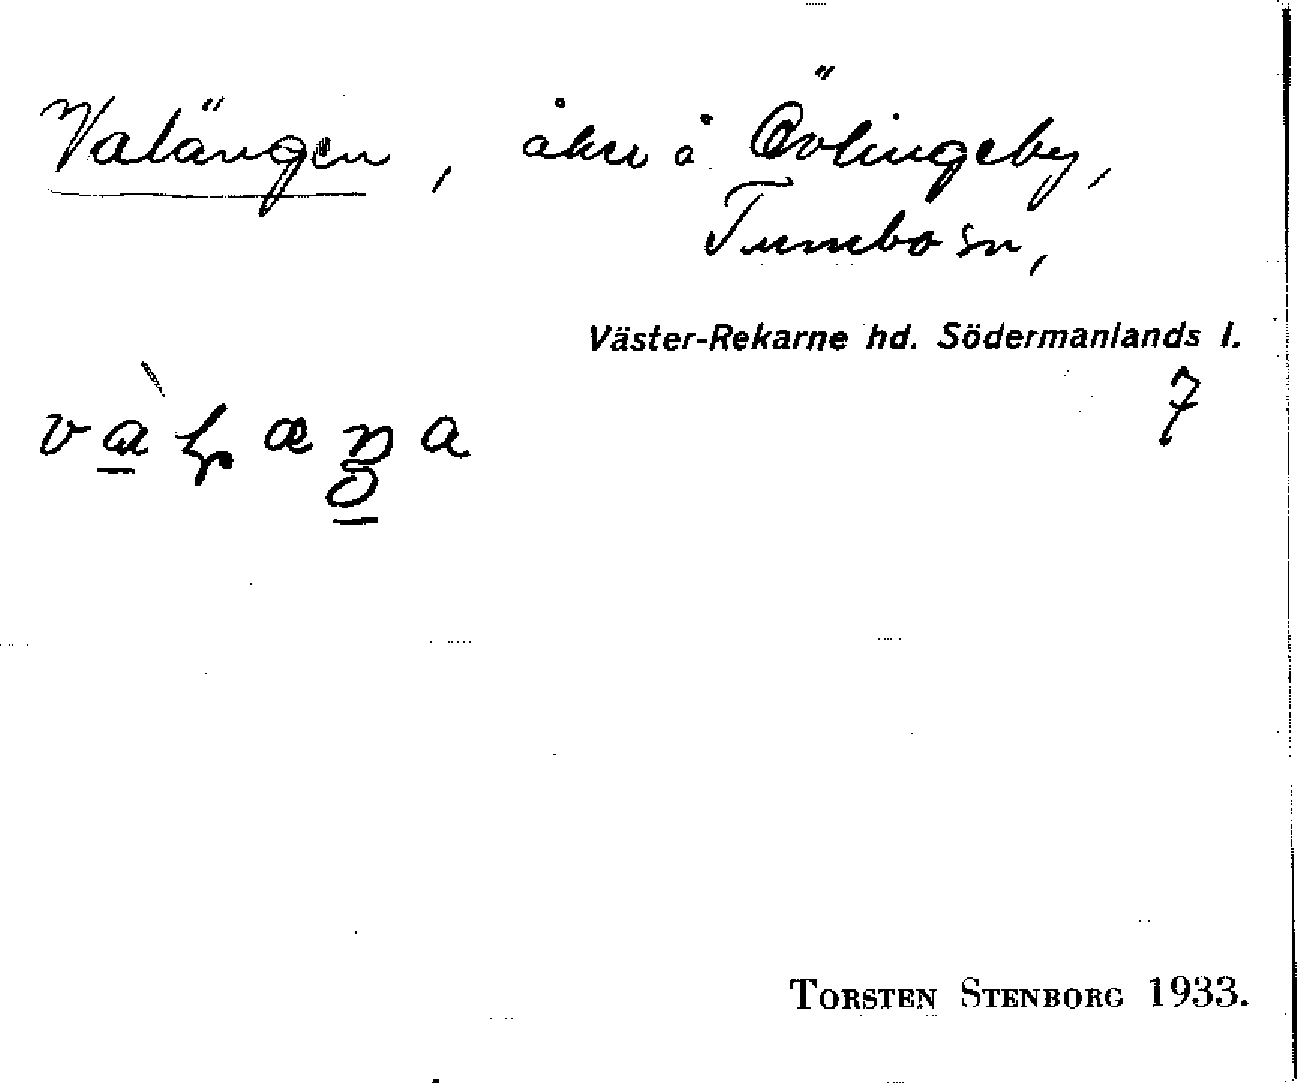 Valängen, åker å Övlingeby,
Tumbo sn,
Väster-Rekarne hd. Södermanlands l.
7
TORSTEN STENBORG 1933.